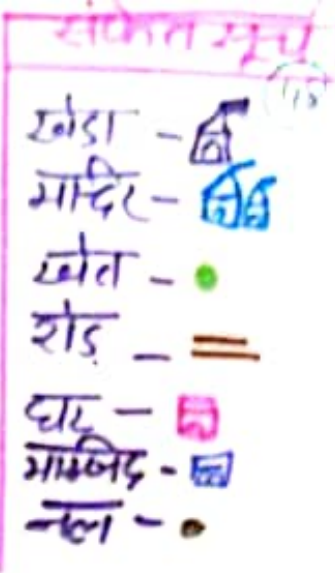 संकेत सूची
खेडा -
मन्दिर -
खेत -
रोड़ -
घर -
मस्जिद -
नल -